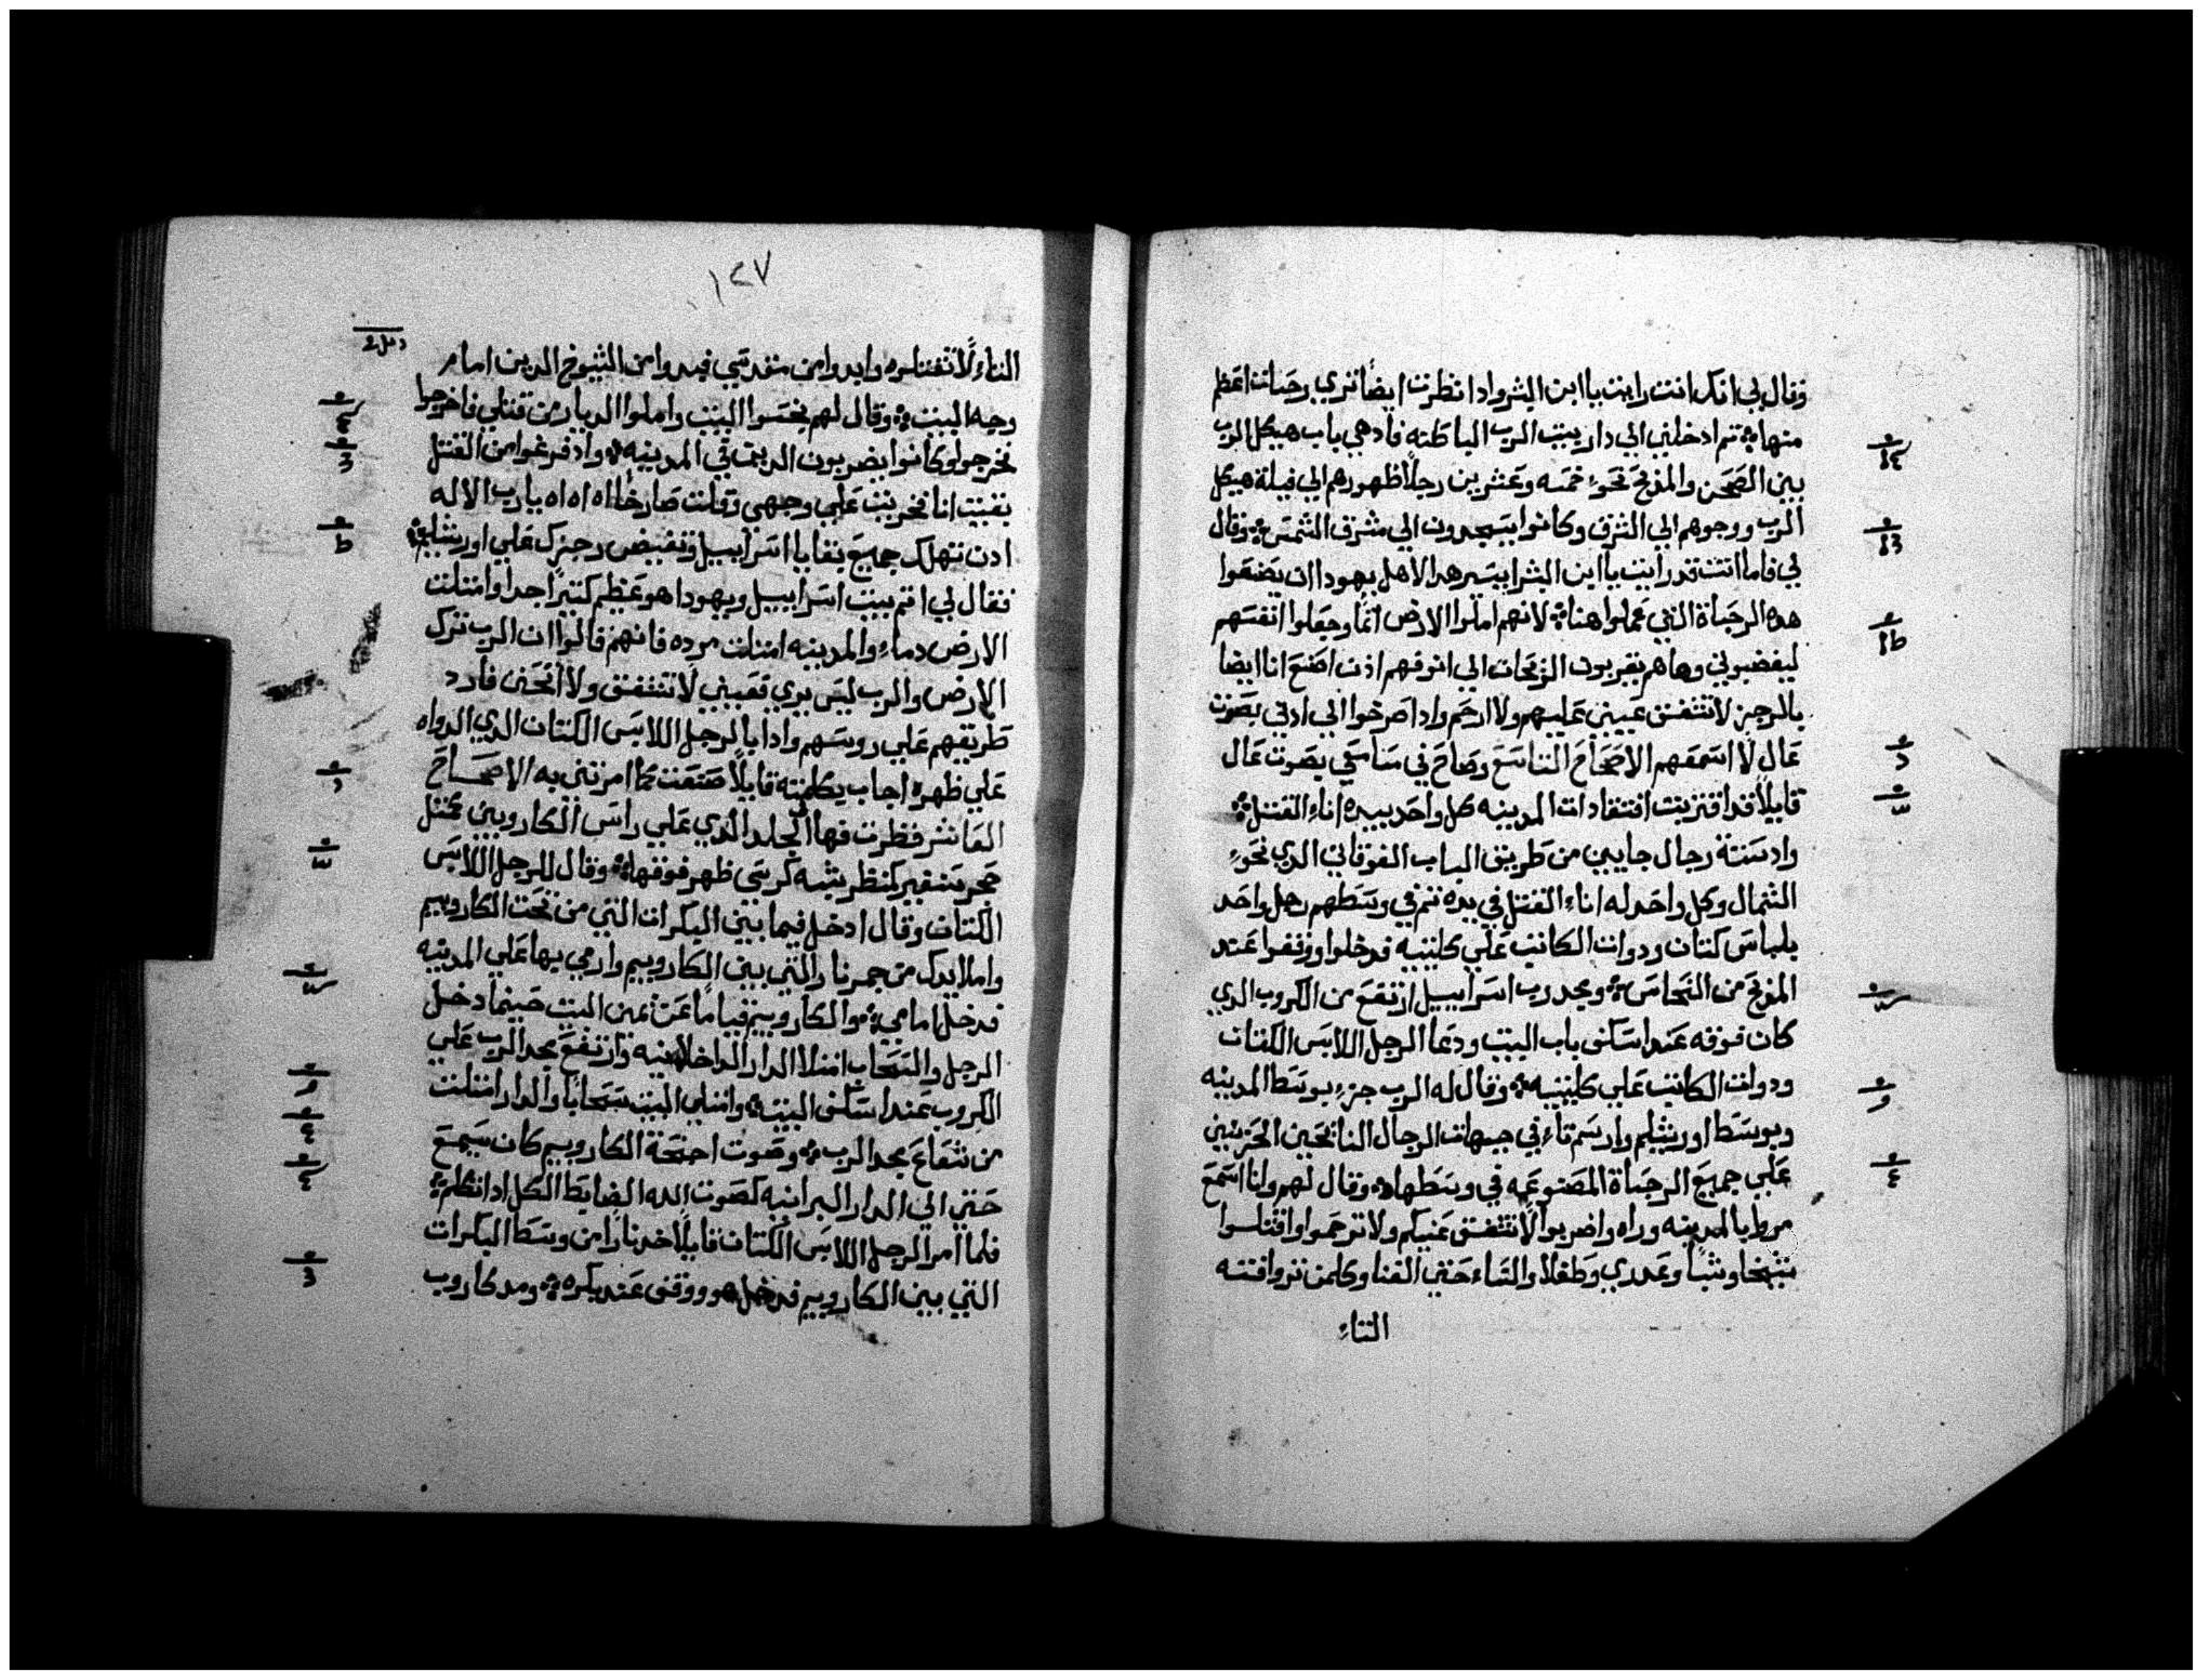 وقال لي انك انت رايت يا ابن البشر واذا نظرت ايضاً تري رجسات اعظم
منها ثم ادخلني الي دار بيت الرب الباطنه فاذ هي باب هيكل الرب
بين الصحن والمذبح نحوء خمسه وعشرين رجلاً ظهورهم الي قبلة هيكل
الرب ووجوهم الي الشرق وكانوا يسجدون الي مشرق الشمس وقال
لي فاما انت قد رايت يا ابن البشر ايسير هدا لاهل يهودا ان يصنعوا
هده الرجساة التي عملوا هنا لانهم املوا الارض اثماً وجعلوا انفسهم
ليغضبوني وها هم يقربون الزبحات الي انوفهم اذن اصنع انا ايضا
بالرجز لا تشفق عيني عليهم ولا ارحم واذا صرخوا الي ادني بصوت
عال لا اسمعهم الاصحاح التاسع وصاح في مسامعي بصوت عال
قايلاً قد اقتربت افتقادات المدينه كل واحد بيده اناء القتل
واد ستة رجال جايين من طريق الباب الفوقاني الدي نحوء
الشمال وكل واحد له اناء القتل في يده ثم في وسطهم رجل واحد
بلباس كتان ودوات الكاتب علي كليتيه فدخلوا ووقفوا عند
المذبح من النحاس ومجد رب اسراييل ارتفع من الكروب الدي
كان فوقه عند اسكفي باب البيت ودعا الرجل اللابس الكتان
ودوات الكاتب علي كليتيه وقال له الرب جزء بوسط المدينه
وبوسط اورشليم وارسم تاء في جبهات الرجال النايحين الحزينين
علي جميع الرجساة المصنوعه في وسطها وقال لهم وانا اسمع
مروا بالمدينه وراه واضربوا لا تشفق عنيكم ولا ترحموا واقتلوا
شيخا وشباً وعدري وطفلاً والنساء حتي الفنا وكلمن تروا فتته
التاء
١٤٧
التاء لا تقتلوه وابدوا من مقدسي فبدوا من الشيوخ الدين امام
وجه البيت وقال لهم نجسوا البيت واملوا الديار من قتلي فاخرجوا
فخرجوا وكانوا يضربون الديت في المدينه واد فرغوا من القتل
بقيت انا فخريت علي وجهي وقلت صارخاً اه اه اه يا رب الاله
ادن تهلك جميع بقايا اسراييل وتفيض رجزك علي اورشليم
فقال لي اتم بيت اسراييل ويهودا هو عظيم كتيراً جدا وامتلت
الارض دماء والمدينه امتلت مرده فانهم قالوا ان الرب ترك
الارض والرب ليس يري فعيني لا تشفق ولا اتحنن فارد
طريقهم علي روسهم واذا بالرجل اللابس الكتان الدي الدواه
علي ظهره اجاب بكلمته قايلاً صنعت كما امرتني به الاصحاح
العاشر فظرت فها الي الجلد الدي علي راس الكاروبين كمتل
حجر سفير كمنظر شبه كرسي ظهر فوقها وقال للرجل اللابس
الكتان وقال ادخل فيما بين البكرات التي من تحت الكاروبيم
واملا يدك من جمر نار التي بين الكاروبيم وارمي بها علي المدينه
فدخل امامي والكاروبيم قياماً عن تمين البيت حينما دخل
الرجل والسحاب امتلا الدار الداخلانيه وارتفع مجد الرب علي
الكروب عند اسكفي البيت وامتلي البيت سحاباً والدار امتلت
من شعاع مجد الرب وصوت اجنحة الكاروبيم كان يسمع
حتي الي الدار البرانيه كصوت الله الضابط الكل اذا تكلم
فلما امر الرجل اللابس الكتان قايلاً خد ناراً من وسط البكرات
التي بين الكاروبيم فدخل هو ووقف عند بكره ومد كاروب